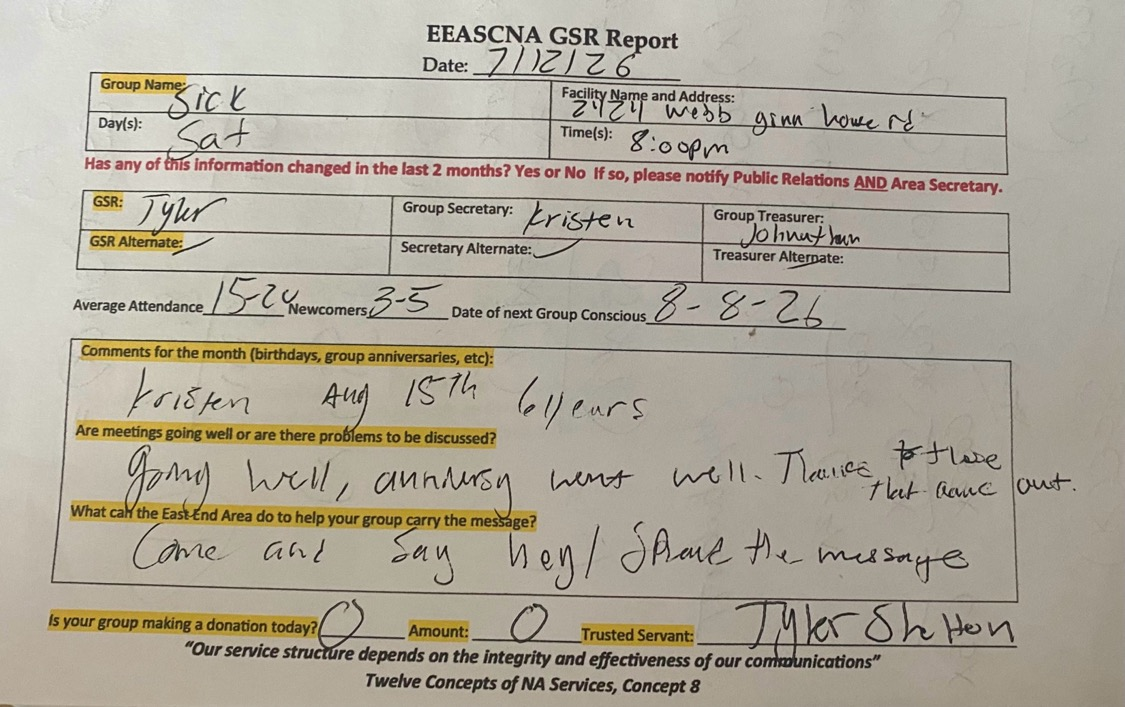 EEASCNA GSR Report
Date: 7/12/26
Group Name: Sick
Facility Name and Address: 2424 Webb ginn house rd
Day(s): Sat
Time(s): 8:00pm
Has any of this information changed in the last 2 months? Yes or No If so, please notify Public Relations AND Area Secretary.
GSR: Tyler
Group Secretary: Kristen
Group Treasurer: Johnathan
GSR Alternate:
Secretary Alternate:
Treasurer Alternate:
Average Attendance 15-20 Newcomers 3-5 Date of next Group Conscious 8-8-26
Comments for the month (birthdays, group anniversaries, etc):
Kristen Aug 15th 6 years
Are meetings going well or are there problems to be discussed?
going well, went well. to those
that came out.
What can the East End Area do to help your group carry the message?
Come and Say hey/ the message
Is your group making a donation today? 0 Amount: 0 Trusted Servant: Tyler Shelton
"Our service structure depends on the integrity and effectiveness of our communications"
Twelve Concepts of NA Services, Concept 8